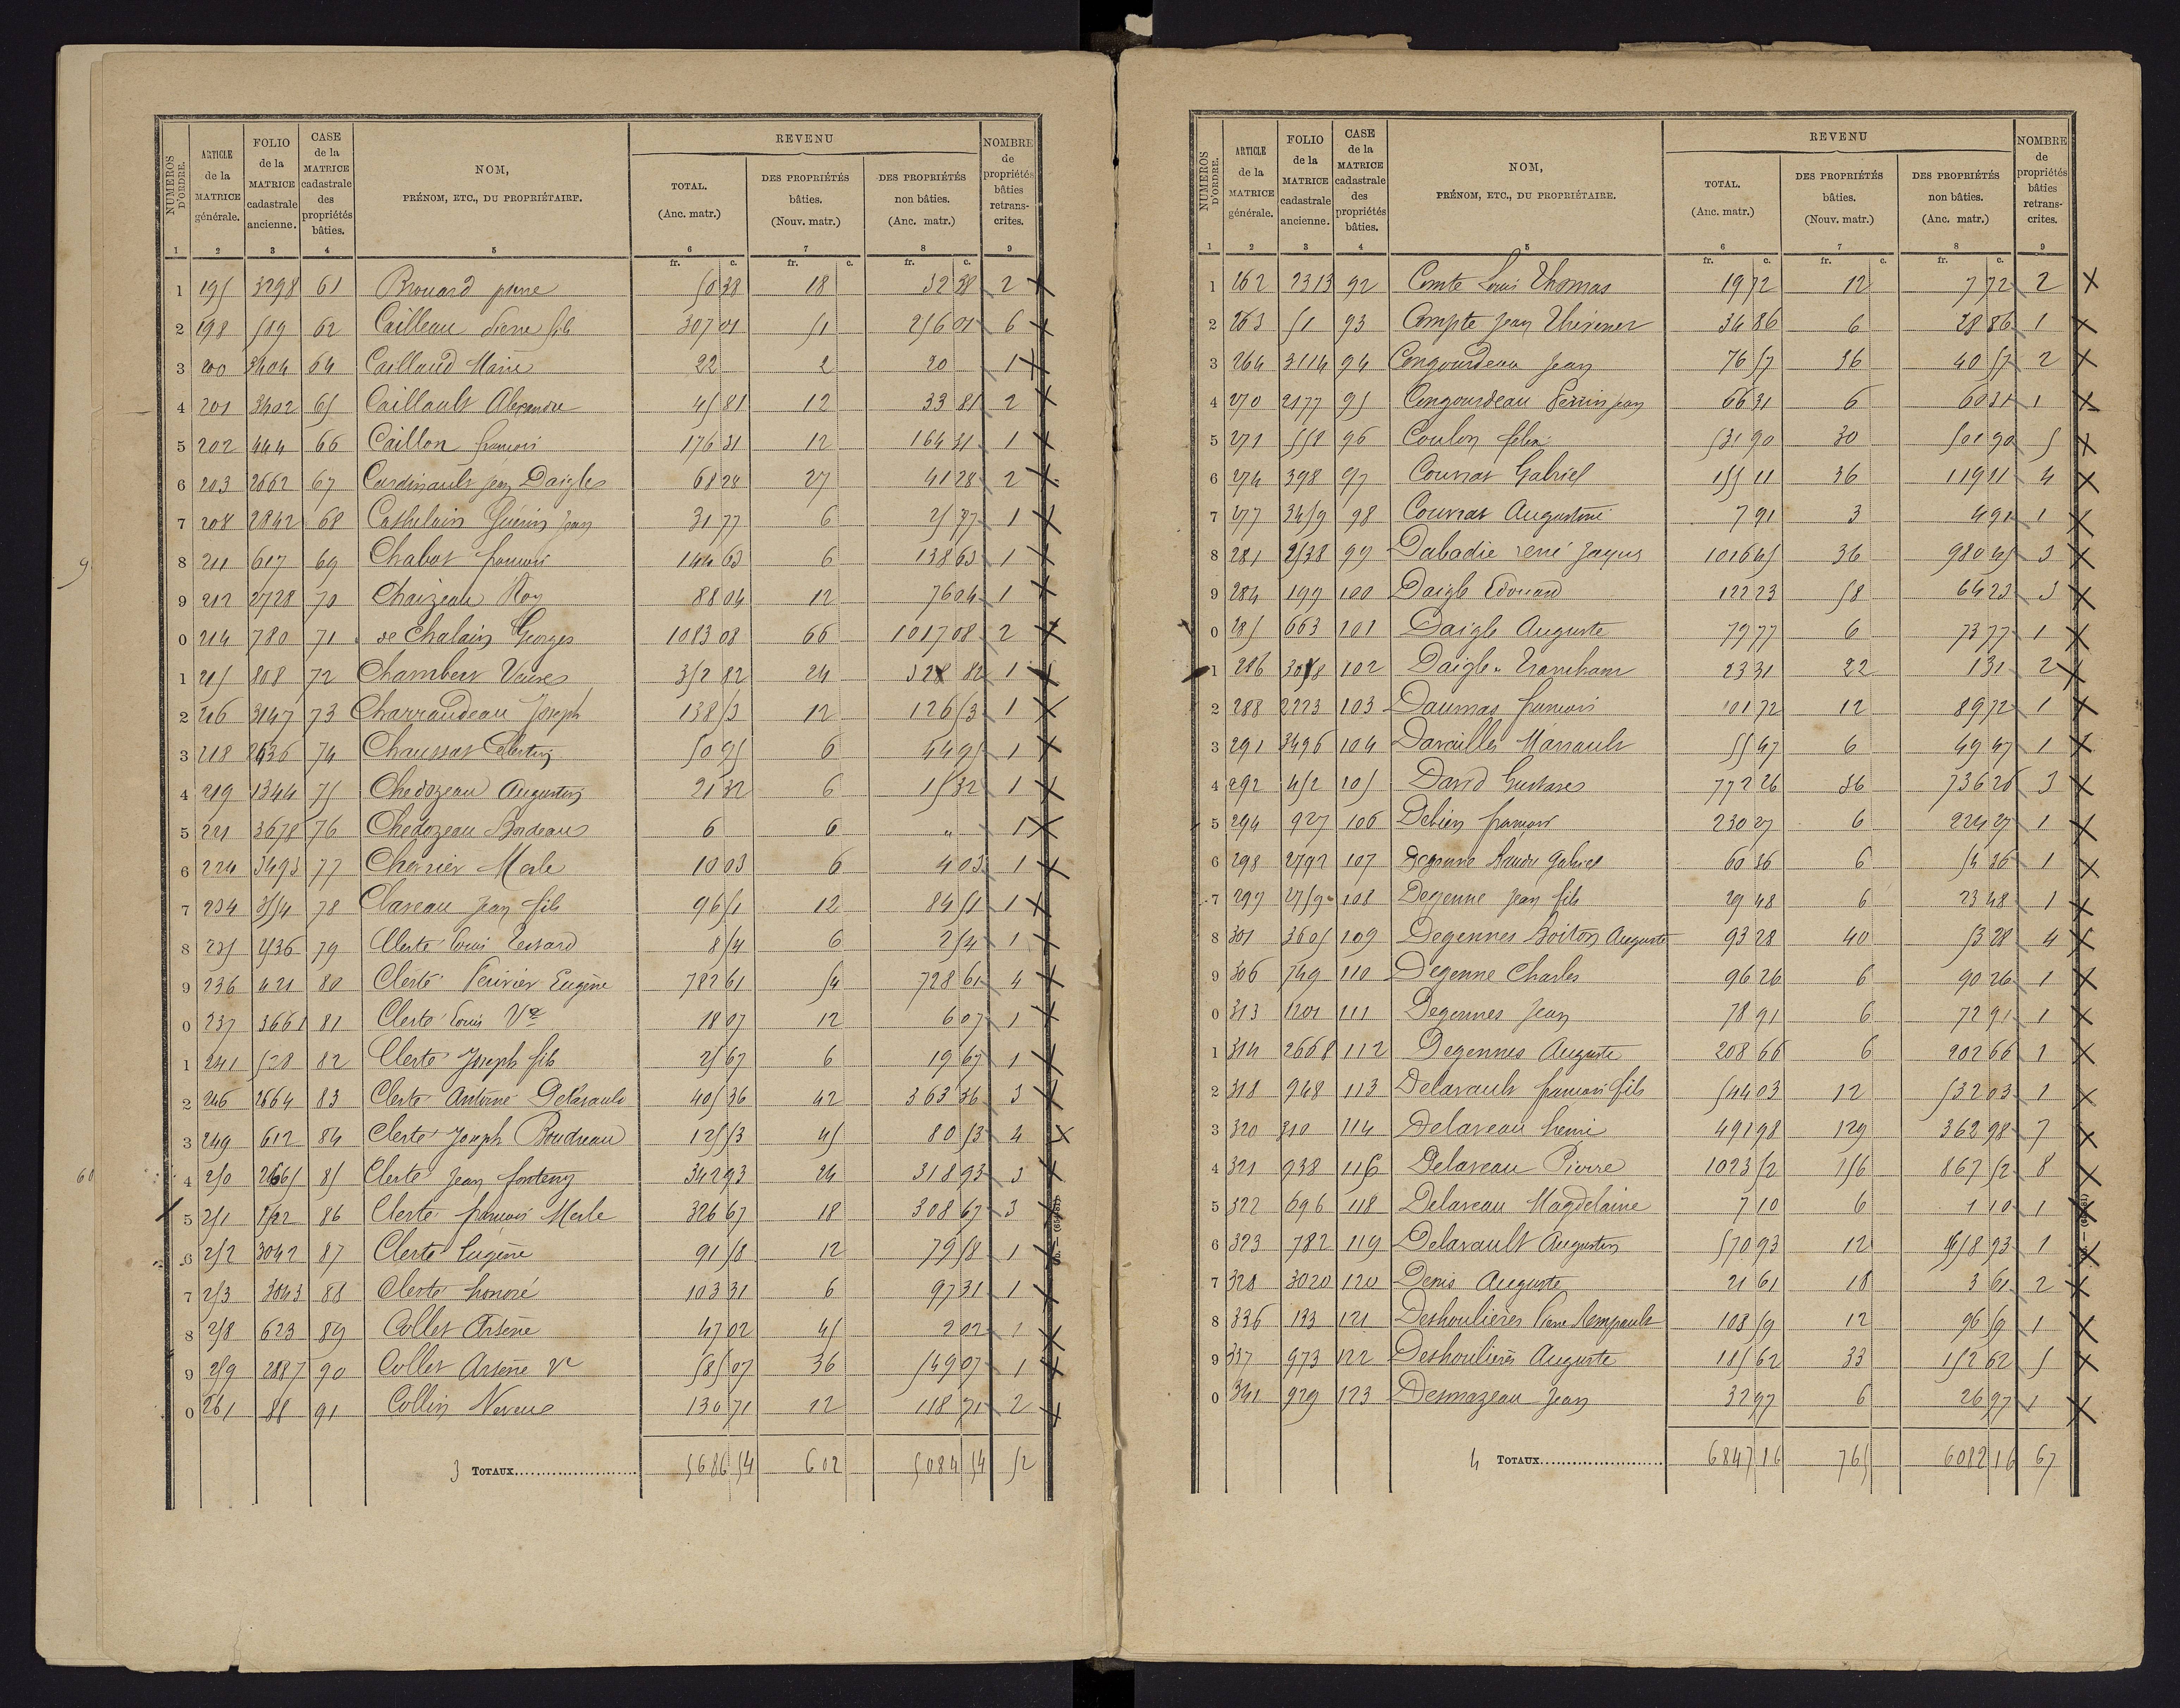 NUMÉROS D'ORDRE. | ARTICLE de la MATRICE générale. | FOLIO de la MATRICE cadastrale ancienne. | CASE de la MATRICE cadastrale des propriétés bâties. | NOM, PRÉNOM, ETC., DU PROPRIÉTAIRE. | REVENU | TOTAL. (Anc. matr.) | DES PROPRIÉTÉS bâties. (Nouv. matr.) | DES PROPRIÉTÉS non bâties. (Anc. matr.) | NOMBRE de propriétés bâties retranscrites.
1 2 3 4 5 6 7 8 9
fr. c. fr. c. fr. c.
1 195 3298 61 Brouard pierre 50 38 18 32 38 2 X
2 198 519 62 Cailleau Pierre fils 307 01 51 256 01 6 X
3 200 3404 64 Caillaud Marie 22 2 20 1 X
4 201 3402 65 Caillault Alexandre 45 81 12 33 81 2 X
5 202 444 66 Caillon françois 176 31 12 164 31 1 X
6 203 2662 67 Cardinault Jean Daigle 68 28 27 41 28 2 X
7 208 2842 68 Cathelain Guérin Jean 31 77 6 25 77 1 X
8 211 617 69 Chabot françois 144 63 6 138 63 1 X
9 212 2728 70 Chaizeau Roy 88 04 12 76 04 1 X
0 214 780 71 de Chalain Georges 1083 08 66 1017 08 2 X
1 215 808 72 Chambert 352 82 24 328 82 1 X
2 216 3147 73 Charraudeau Joseph 138 53 12 126 53 1 X
3 218 2636 74 Chaussat Célestin 50 95 6 44 95 1 X
4 219 1344 75 Chedozeau Augustin 21 32 6 15 32 1 X
5 221 3678 76 Chedozeau Bordeau 6 6 " 1 X
6 224 3493 77 Cherrier Merle 10 03 6 4 03 1 X
7 234 3554 78 Claveau Jean fils 96 51 12 84 51 1 X
8 235 2536 79 Clerté Louis Lessard 8 54 6 2 54 1 X
9 236 421 80 Clerté Périvier Eugène 782 61 54 728 61 4 X
0 237 3661 81 Clerté Louis Ve 18 07 12 6 07 1 X
1 241 528 82 Clerté Joseph fils 25 67 6 19 67 1 X
2 246 2664 83 Clerté Antoine Delavault 405 36 42 363 36 3 X
3 249 612 84 Clerté Joseph Boudreau 125 53 45 80 53 4 X
4 250 2665 85 Clerté Jean fonteny 342 93 24 318 93 3 X
5 251 1522 86 Clerté françois Merle 326 67 18 308 67 3 X
6 252 3042 87 Clerté Eugène 91 58 12 79 58 1 X
7 253 3043 88 Clerté honoré 103 31 6 97 31 1 X
8 258 623 89 Collet Arsène 47 02 45 2 02 1 X
9 259 2887 90 Collet Arsène Ve 585 07 36 549 07 1 X
0 261 88 91 Collin Neveue 130 71 12 118 71 2 X
3 TOTAUX 5686 54 602 5084 54 52
NUMÉROS D'ORDRE. | ARTICLE de la MATRICE générale. | FOLIO de la MATRICE cadastrale ancienne. | CASE de la MATRICE cadastrale des propriétés bâties. | NOM, PRÉNOM, ETC., DU PROPRIÉTAIRE. | REVENU | TOTAL. (Anc. matr.) | DES PROPRIÉTÉS bâties. (Nouv. matr.) | DES PROPRIÉTÉS non bâties. (Anc. matr.) | NOMBRE de propriétés bâties retranscrites.
1 2 3 4 5 6 7 8 9
fr. c. fr. c. fr. c.
1 262 2313 92 Comte Louis Thomas 19 72 12 7 72 2 X
2 263 51 93 Compte Jean Thévenet 34 86 6 28 86 1 X
3 264 3114 94 Congourdeau Jean 76 57 36 40 57 2 X
4 270 2177 95 Congourdeau Perrin Jean 66 31 6 60 31 1 X
5 271 558 96 Coulon felix 531 90 30 501 90 5 X
6 274 398 97 Couvrat Gabriel 155 11 36 119 11 4 X
7 277 3459 98 Couvrat Augustine 7 91 3 4 91 1 X
8 281 2538 99 Dabadie rené Jaques 1016 45 36 980 45 3 X
9 284 199 100 Daigle Edouard 122 23 58 64 23 3 X
0 285 663 101 Daigle Auguste 79 77 6 73 77 1 X
1 286 3058 102 Daigle Tranchant 23 31 22 1 31 2 X
2 288 2223 103 Daumas françois 101 72 12 89 72 1 X
3 291 3496 104 Davailles Marsault 55 47 6 49 47 1 X
4 292 452 105 David Gustave 772 26 36 736 26 3 X
5 294 927 106 Debien françois 230 27 6 224 27 1 X
6 298 2792 107 Degenne Gabriel 60 36 6 54 36 1 X
7 299 2759 108 Degenne Jean fils 29 48 6 23 48 1 X
8 301 3605 109 Degennes Boiton Auguste 93 28 40 53 28 4 X
9 306 749 110 Degenne Charles 96 26 6 90 26 1 X
0 313 1201 111 Degennes Jean 78 91 6 72 91 1 X
1 314 2668 112 Degennes Auguste 208 66 6 202 66 1 X
2 318 948 113 Delavault françois fils 544 03 12 532 03 1 X
3 320 310 114 Delaveau henri 491 98 129 362 98 7 X
4 321 938 116 Delaveau Pierre 1023 52 156 867 52 8 X
5 322 696 118 Delaveau Magdelaine 7 10 6 1 10 1 X
6 323 782 119 Delavault Augustin 570 93 12 558 93 1 X
7 328 3020 120 Denis Auguste 21 61 18 3 61 2 X
8 336 133 121 Deshoulières Pierre Rempault 108 59 12 96 59 1 X
9 337 973 122 Deshoulières Auguste 185 62 33 152 62 5 X
0 341 929 123 Desmazeau Jean 32 97 6 26 97 1 X
4 TOTAUX 6847 16 765 6082 16 67